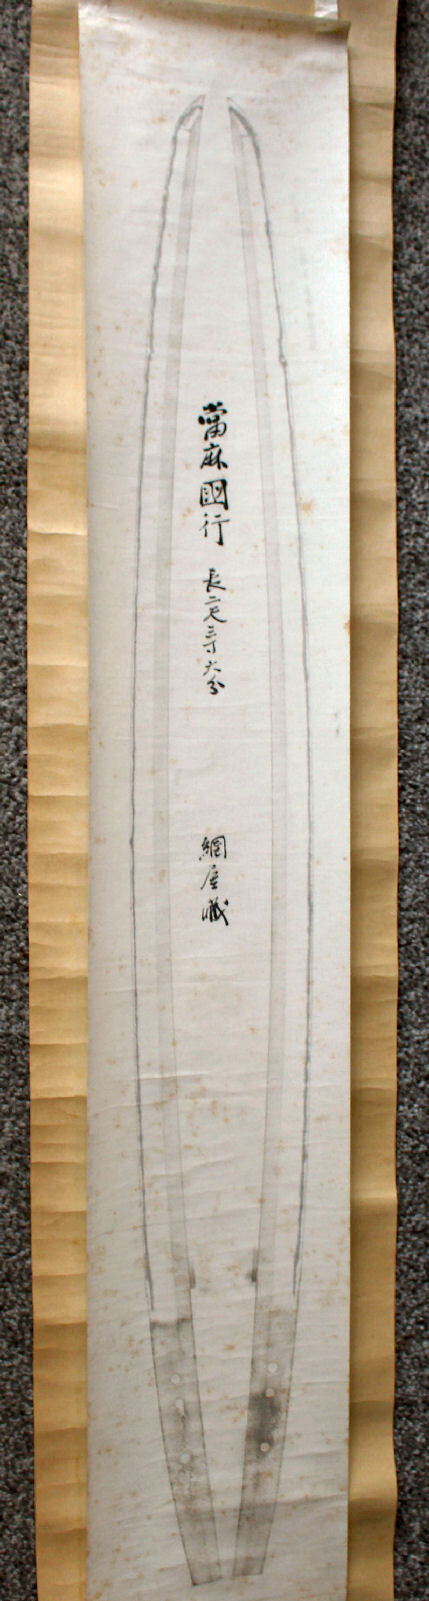 當麻國行
長二尺三寸六分
網屋蔵